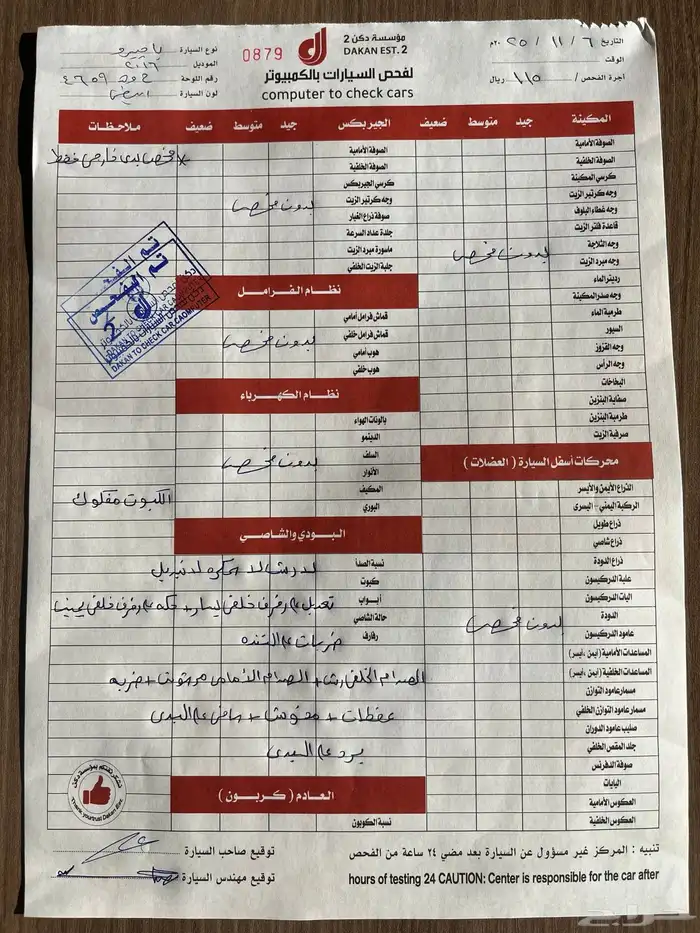 التاريخ ٦ / ١١ / ٢٥ ٢٠م
الوقت
أجرة الفحص / ١١٥ ريال
مؤسسة دكن 2
DAKAN EST. 2
لفحص السيارات بالكمبيوتر
computer to check cars
0879
نوع السيارة باجيرو
الموديل ٢٠١٦
رقم اللوحة ٤٦٥٩
لون السيارة ابيض
المكينة جيد متوسط ضعيف
الصوفة الأمامية
الصوفة الخلفية
كرسي المكينة
وجه كرتير الزيت
وجه غطاء البلوف
قاعدة فلتر الزيت
وجه الثلاجة
وجه مبرد الزيت
بدون فحص
رديتر الماء
وجه صدر المكينة
طرمبة الماء
السيور
وجه القزوز
وجه الرأس
البخاخات
صفاية البنزين
طرمبة البنزين
صرفية الزيت
محركات أسفل السيارة ( العضلات )
الذراع الأيمن والأيسر
الركبة اليمنى - اليسرى
ذراع طويل
ذراع شاصي
ذراع الدودة
علبة الدركسون
اليات الدركسون
الدودة
بدون فحص
عامود الدركسون
المساعدات الأمامية (أيمن ,أيسر)
المساعدات الخلفية (أيمن ,أيسر)
مسمار عامود التوازن
مسمار عامود التوازن الخلفي
صليب عامود الدوران
جلد المقص الخلفي
صوفة الدفرنس
اليايات
العكوس الأمامية
العكوس الخلفية
الجيربكس جيد متوسط ضعيف
الصوفة الأمامية
الصوفة الخلفية
كرسي الجيربكس
وجه كرتير الزيت
بدون فحص
صوفة ذراع الغيار
جلدة عداد السرعة
ماسورة مبرد الزيت
جلبة الزيت الخلفي
نظام الفرامل
قماش فرامل أمامي
قماش فرامل خلفي
بدون فحص
هوب أمامي
هوب خلفي
نظام الكهرباء
بالونات الهواء
الدينمو
السلف
بدون فحص
الأنوار
المكيف
البوري
البودي والشاصي
نسبة الصدأ
كبوت
أبواب
تعديل ع رفرف خلفي يسار + حكه ع رفرف خلفي يمين
حالة الشاصي
رفارف
ضربات ع التنده
الصدام الخلفي رش + الصدام الأمامي مرشوش + ضربه
عفطات + مغوش + ع البدي
برد ع البدي
العادم ( كربون )
نسبة الكوبون
ملاحظات
* فحص بدي خارجي فقط
تم الفحص
2
DAKAN TO CHECK CAR CAOMPUTER
الكبوت مفكوك
Thank, yourtrust Dakan Est.
تنبيه : المركز غير مسؤول عن السيارة بعد مضي ٢٤ ساعة من الفحص
hours of testing 24 CAUTION: Center is responsible for the car after
توقيع صاحب السيارة
توقيع مهندس السيارة
حراج